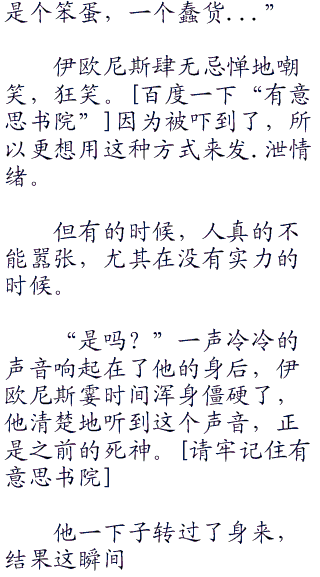 是个笨蛋，一个蠢货...”
伊欧尼斯肆无忌惮地嘲
笑，狂笑。[百度一下“有意
思书院”]因为被吓到了，所
以更想用这种方式来发.泄情
绪。
但有的时候，人真的不
能嚣张，尤其在没有实力的
时候。
“是吗？”一声冷冷的
声音响起在了他的身后，伊
欧尼斯霎时间浑身僵硬了，
他清楚地听到这个声音，正
是之前的死神。[请牢记住有
意思书院]
他一下子转过了身来，
结果这瞬间